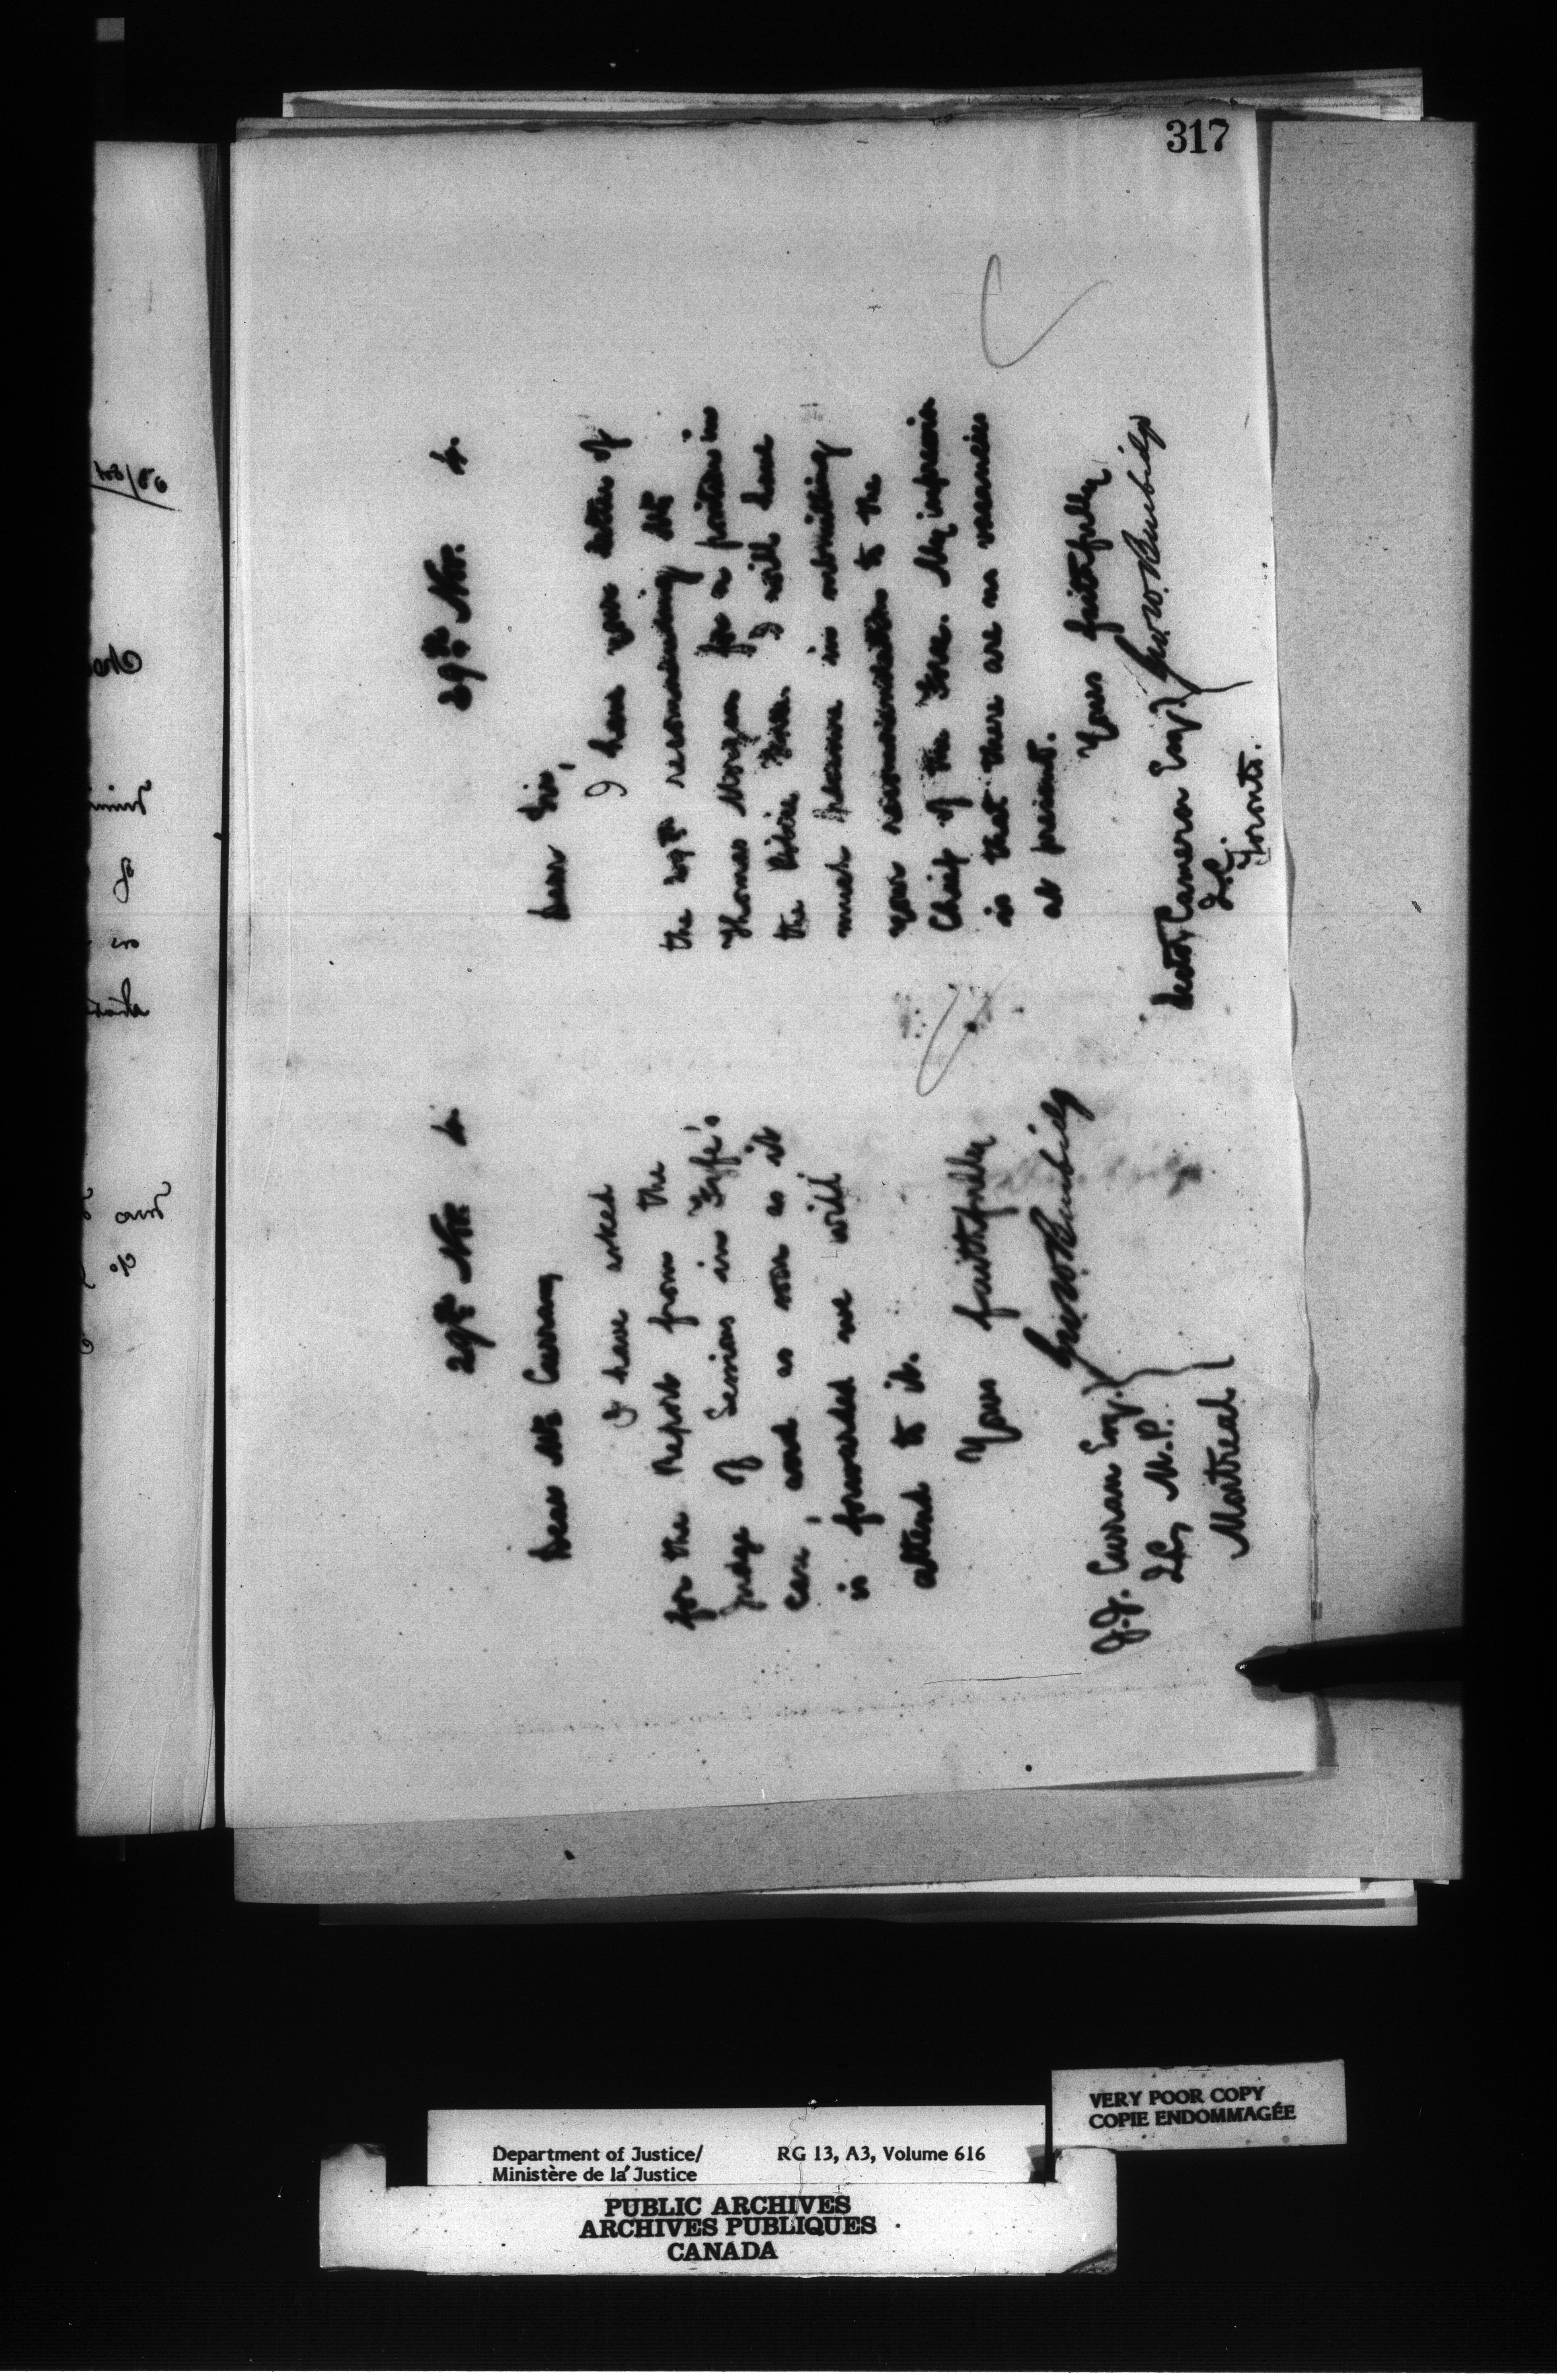 317
29th Nov.
Dear Mr Curran,
I have asked
for the Report from the
Judge of Sessions in Fyfe's
case, and as soon as it
is forwarded we will
attend to it.
Yours faithfully
Geo. W. Burbidge
J. J. Curran Esq.
Q.C., M.P.
Montreal
29th Nov.
Dear Sir,
I have your letter of
the 29th recommending Mr
Thomas Morgan for a position in
the Police Force. I will have
much pleasure in submitting
your recommendation to the
Chief of the Force. My impression
is that there are no vacancies
at present.
Yours faithfully
Geo. W. Burbidge
Hector Cameron Esq.
Q.C.
Toronto.
VERY POOR COPY
COPIE ENDOMMAGÉE
Department of Justice/ RG 13, A3, Volume 616
Ministère de la Justice
PUBLIC ARCHIVES
ARCHIVES PUBLIQUES
CANADA